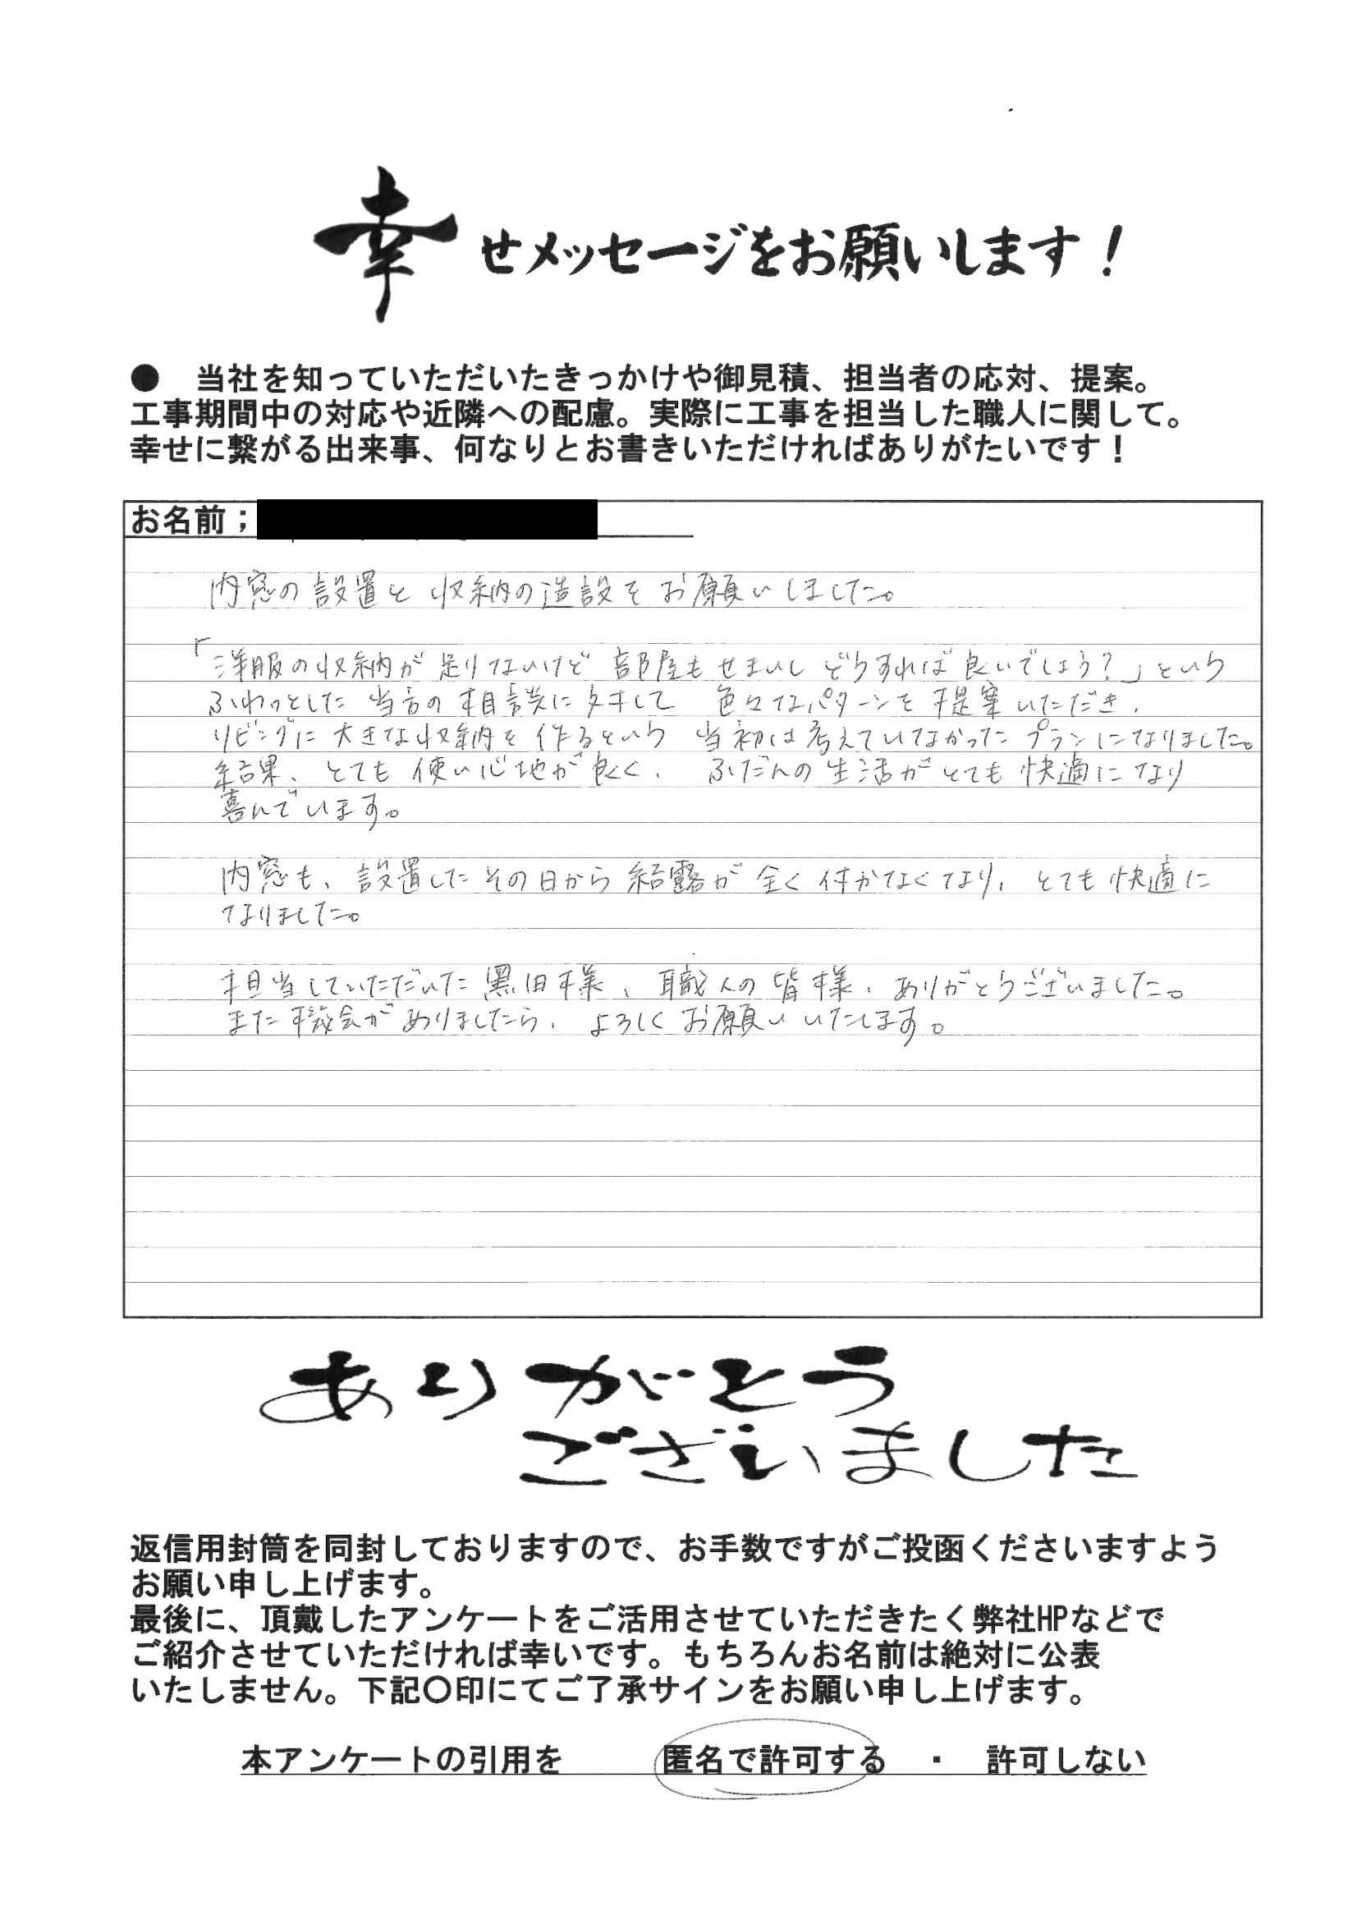 幸せメッセージをお願いします！
● 当社を知っていただいたきっかけや御見積、担当者の応対、提案。
工事期間中の対応や近隣への配慮。実際に工事を担当した職人に関して。
幸せに繋がる出来事、何なりとお書きいただければありがたいです！
お名前；
内窓の設置と収納の造設をお願いしました。
「洋服の収納が足りないけど部屋もせまいしどうすれば良いでしょう？」という
ふわっとした当方の相談に対して色々なパターンを提案いただき、
リビングに大きな収納を作るという当初は考えていなかったプランになりました。
結果、とても使い心地が良く、ふだんの生活がとても快適になり
喜んでいます。
内窓も、設置したその日から結露が全く付かなくなり、とても快適に
なりました。
担当していただいた黒田様、職人の皆様、ありがとうございました。
また機会がありましたら、よろしくお願いいたします。
ありがとう
ございました
返信用封筒を同封しておりますので、お手数ですがご投函くださいますよう
お願い申し上げます。
最後に、頂戴したアンケートをご活用させていただきたく弊社HPなどで
ご紹介させていただければ幸いです。もちろんお名前は絶対に公表
いたしません。下記〇印にてご了承サインをお願い申し上げます。
本アンケートの引用を 匿名で許可する ・ 許可しない